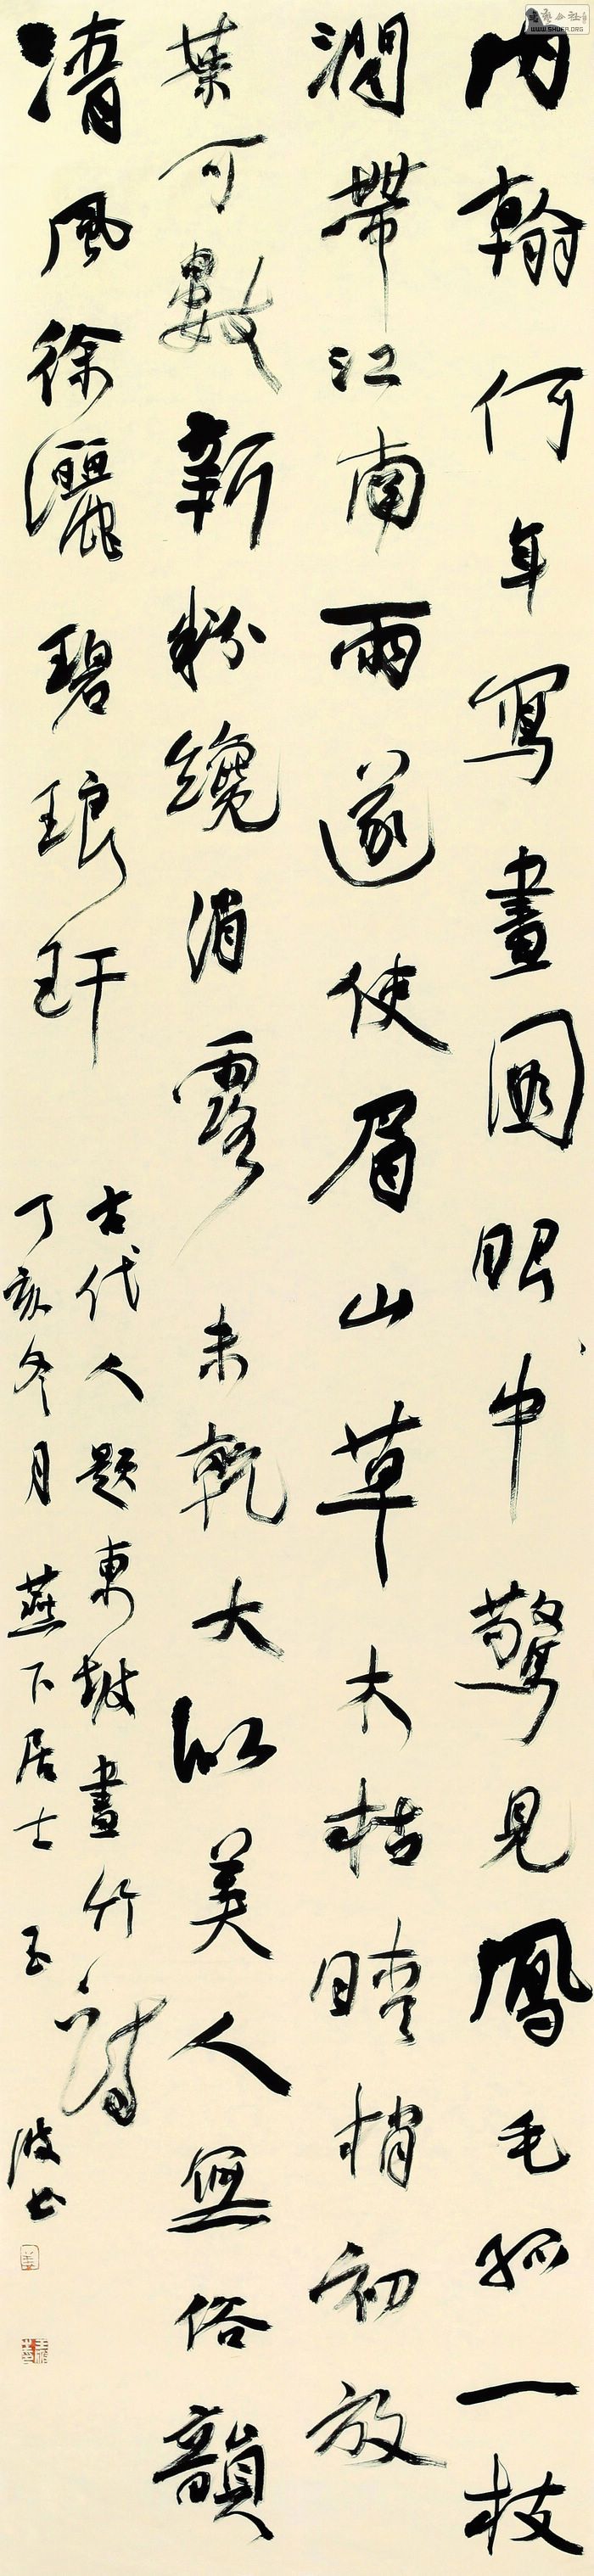 内翰何年寫畫圖眼中驚見鳳毛孤一枝
潤帶江南雨遂使眉山草木枯晴梢初放
葉可數新粉纔消露未乾大似美人無俗韻
清風徐灑碧琅玕
古代人題東坡畫竹詩
丁亥冬月燕下居士玉波书
WWW.SHUFA.ORG